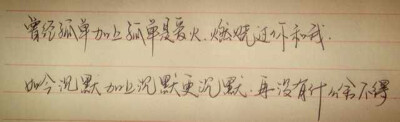 曾经孤单加上孤单是爱火.燃烧过你和我.
如今沉默加上沉默更沉默.再没有什么舍不得